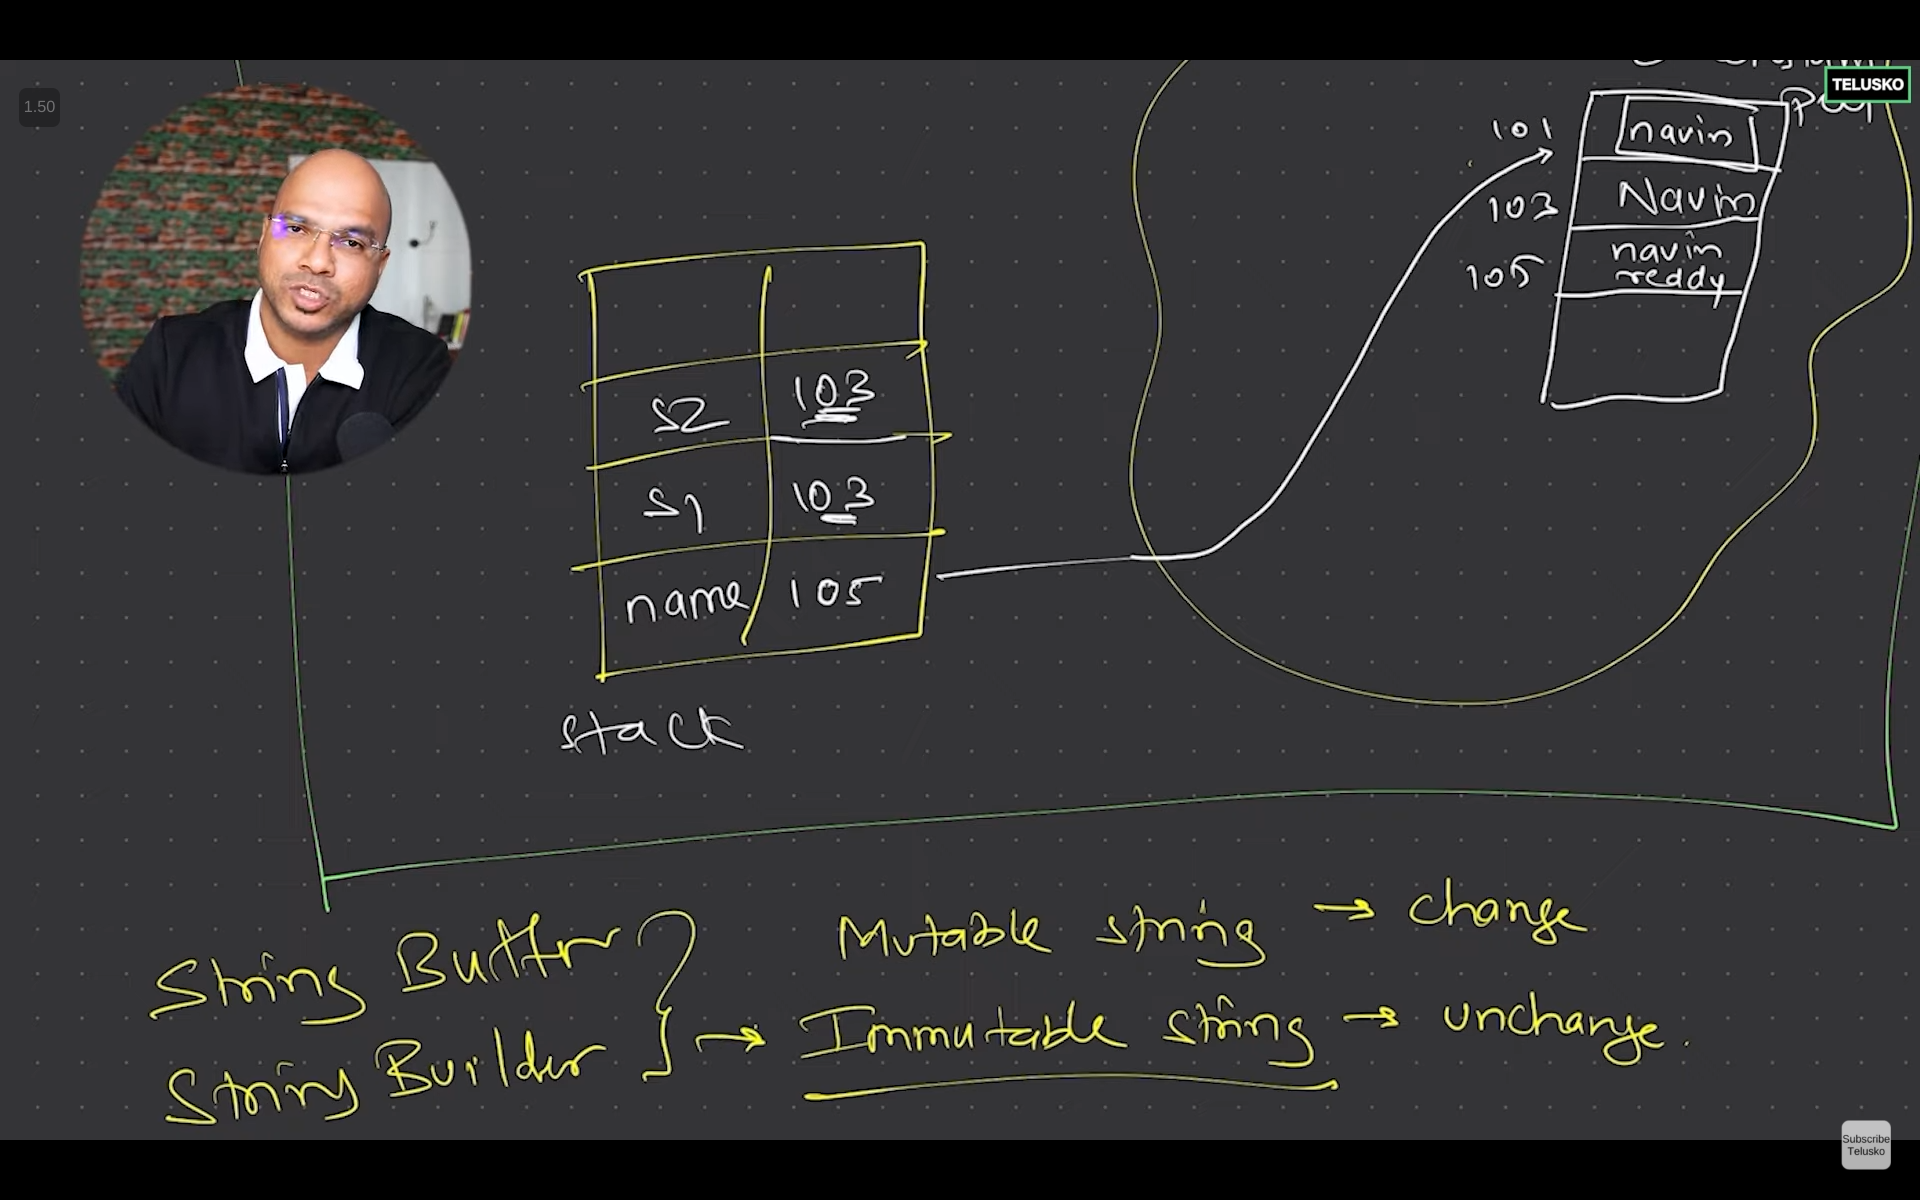 1.50
TELUSKO
101 navin
103 Navin
105 navin
reddy
s2 103
s1 103
name 105
stack
String Buffer
String Builder
Mutable string → change
Immutable string → unchange.
Subscribe
Telusko